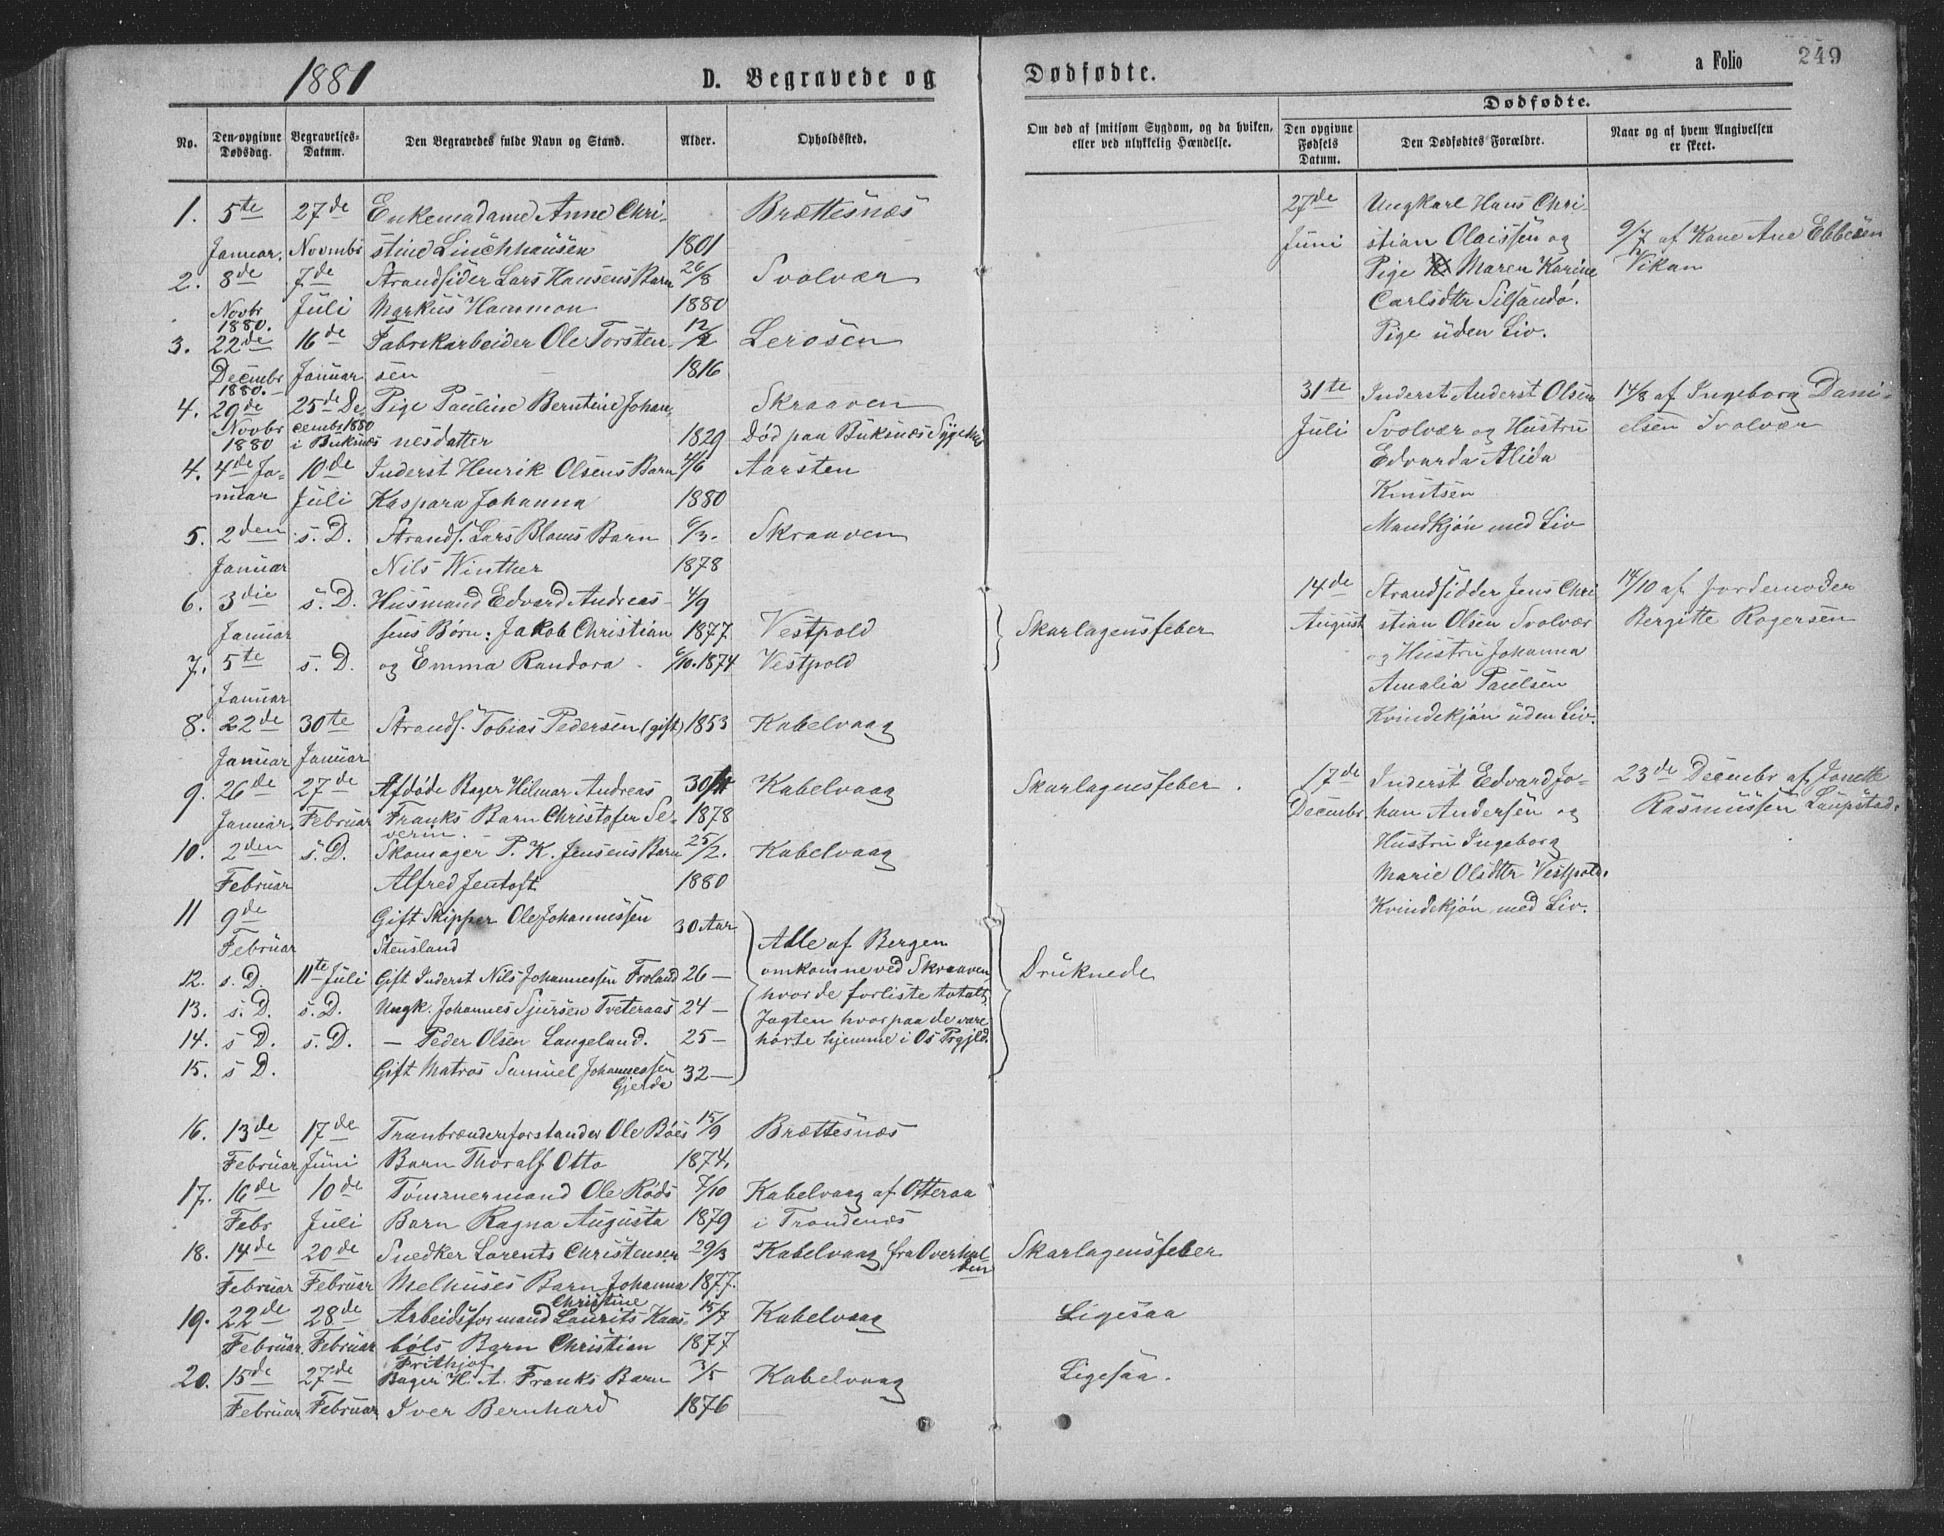 1881
D. Begravede og Dødfødte.
a Folio 249
No.
Den opgivne Dødsdag.
Begravelses-Datum.
Den Begravedes fulde Navn og Stand.
Alder.
Opholdssted.
Om død af smitsom Sygdom, og da hvilken, eller ved ulykkelig Hændelse.
Dødfødte.
Den opgivne Fødsels Datum.
Den Dødfødtes Forældre.
Naar og af hvem Angivelsen er skeet.
1. 5te 27de Enkemadame Anne Chri- Brættesnæs
Januar. Novmbr stine Linchhausen 1801
2. 8de 7de Strandsider Lars Hansens Barn 26/8 Svolvær
Novbr 1880. Juli Markus Hammon 1880
3. 22de 16de Fabrikarbeider Ole Torsten- 12/2 Lerosen
Decmbr 1880. Januar sen 1816
4. 29de 25de De- Pige Pauline Berntine Johan- Skraaven
Novbr 1880 cembr 1880 i Buksnæs nesdatter 1829 Død paa Buksnæs Sygehus
4. 4de Ja- 10de Inderst Henrik Olsens Barn 4/6 Aarsten
nuar Juli Kaspara Johanna 1880
5. 2den s. D. Strands. Lars Blaus Barn 6/3. Skraaven
Januar Nils Winther 1878
6. 3die s. D. Husmand Edvard Andreas- 4/9
Januar sens Børn: Jakob Christian 1877. Vestpold Skarlagensfeber
7. 5te s. D. og Emma Randora 6/10.1874 Vestpold
Januar
8. 22de 30te Strands. Tobias Pedersen (gift) 1853 Kabelvaag
Januar Januar
9. 26de 27de Afdøde Bager Hilmar Andreas 30/11 Kabelvaag Skarlagensfeber.
Januar Februar Franks Barn Christofer Se- 1878
verin.
10. 2den s. D. Skomager P. K. Jensens Barn 25/2. Kabelvaag
Februar Alfred Jentoft 1880
11 9de Gift Skipper Ole Johannessen 30 Aar
Februar Stensland
12. s. D. 11te Juli Gift Inderst Nils Johannessen Froland 26 —
13. s. D. s. D. Ungk. Johannes Sjursen Tveteraas 24 —
14. s D. s. D. — Peder Olsen Langeland. 25 —
15. s D. Gift Matros Samuel Johannessen Gjerde 32 —
Alle af Bergen
omkomne ved Skraaven
hvor de forliste totalt,
Jagten hvorpaa de vare
hørte hjemme i Os Prgjld.
Druknede
16. 13de 17de Tranbrænderforstander Ole Bøes 15/9 Brættesnæs
Februar Juni Barn Thoralf Otto 1874.
17. 16de 10de Tømmermand Ole Røds 7/10 Kabelvaag af Otteraa
Febr Juli Barn Ragna Augusta 1879 i Trondenæs
18. 14de 20de Snedker Lorents Christensen 29/3 Kabelvaag fra Overhal- den Skarlagensfeber
Februar Februar Melhuses Barn Johanna 1877.
Christine
19. 22de 28de Arbeidsformand Laurits Kaas- 15/7 Kabelvaag Ligesaa
Februar. Februar bøls Barn Christian 1877
Frithjof
20. 15de 27de Bager H. A. Franks Barn 3/5 Kabelvaag Ligesaa.
Februar Februar Iver Bernhard 1876
27de Ungkarl Hans Chri-
Juni stian Olaissen og 9/7 af Kone Ane Ebbesen
Pige Maren Karine Vikan
Carlsdtr Silsandø.
Pige uden Liv.
31te Inderst Anderst Olsen 14/8 af Ingeborg Dani-
Juli Svolvær og Hustru elsen Svolvær
Edvarda Alida
Knutsen
Mandkjøn med Liv
14de Strandsidder Jens Chri 14/10 af Jordemoder
August stian Olsen Svolvær Bergitte Rogersen
og Hustru Johanna
Amalia Paulsen
Kvindekjøn uden Liv.
17de Inderst Edvard Jo- 23de Decmbr af Jonette
Decembr. han Andersen og Rasmussen Laupstad.
Hustru Ingeborg
Marie Olsdtr Vestpold.
Kvindekjøn med Liv.